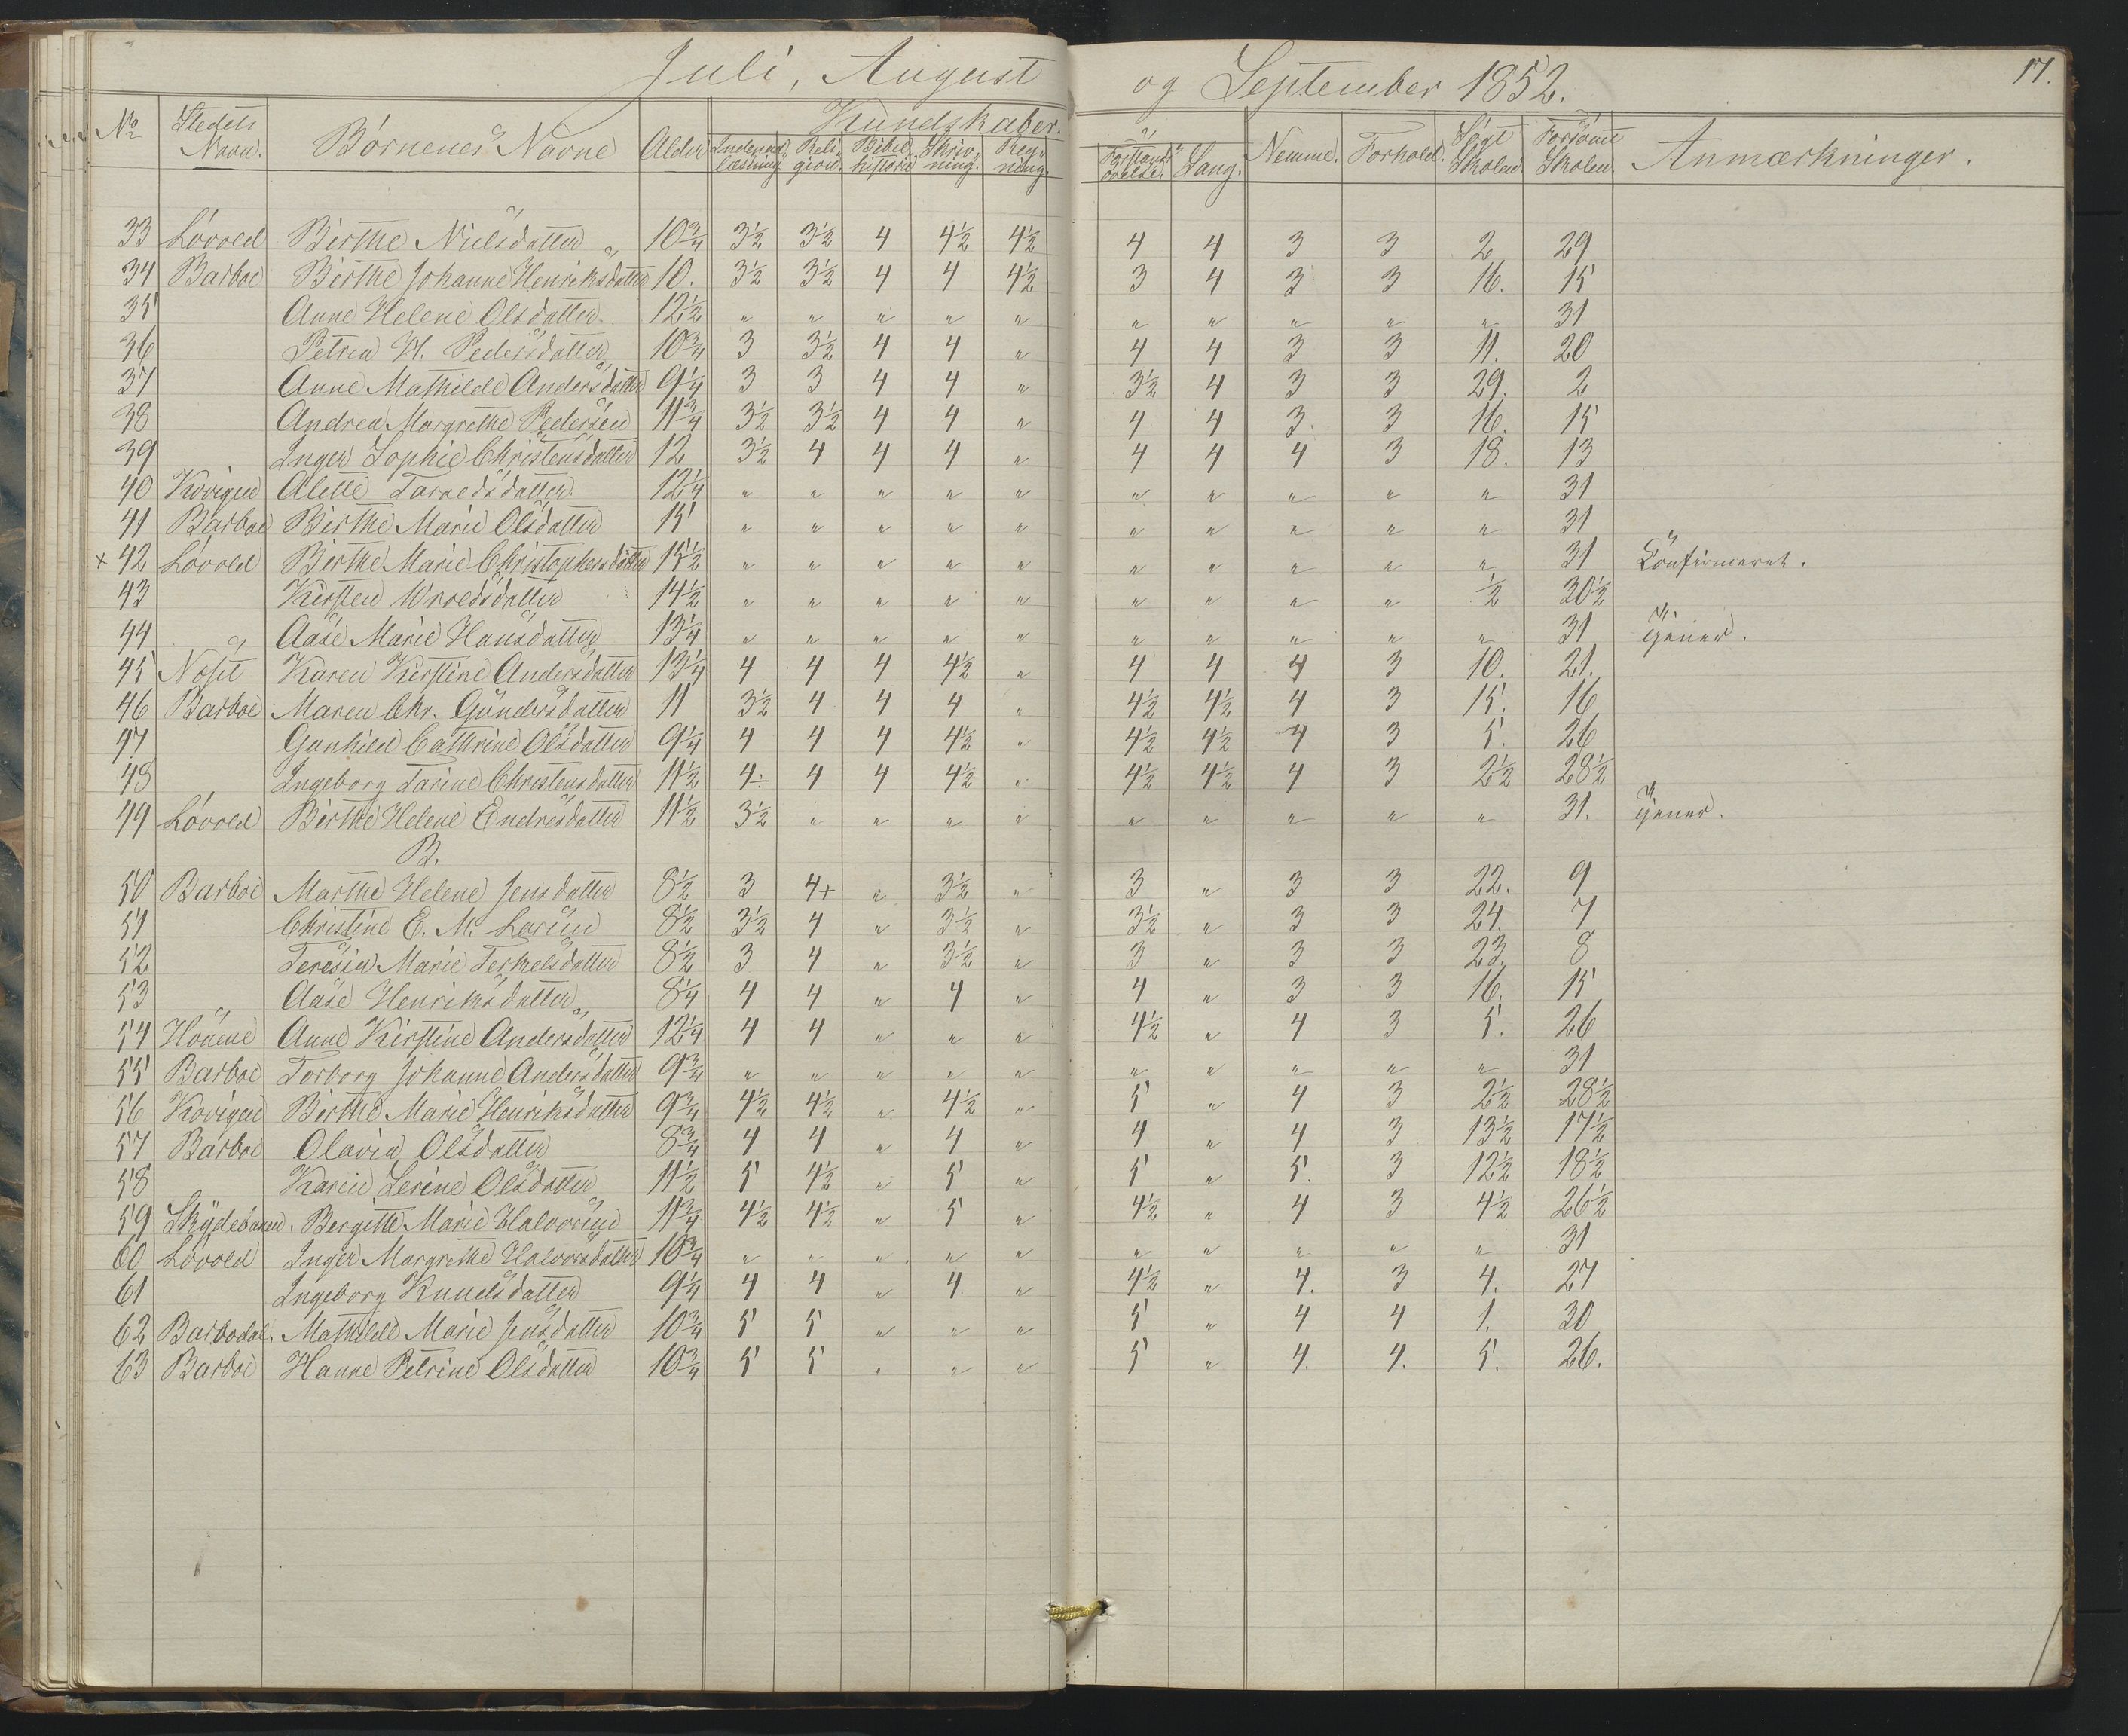 Juli, August og September 1852. 17.
No Stedets Navn. Børnenes Navne Alder Kundskaber. Nemme. Forhold. Søgt Skolen. Forsømt Skolen. Anmærkninger.
Indenad læsning. Religion. Bibel historie Skrivning. Regning. Forstands øvelse. Sang.
33 Løvold Birthe Nielsdatter 10¾ 3½ 3½ 4 4½ 4½ 4 4 3 3 2 29
34 Barboe Birthe Johanne Henriksdatter 10. 3½ 3½ 4 4 4½ 3 4 3 3 16. 15
35 Anne Helene Olsdatter 12½ " " " " " " " " " " 31
36 Petrea H. Pedersdatter 10¾ 3 3½ 4 4 " 4 4 3 3 11. 20
37 Anne Mathilde Andersdatter 9¼ 3 3 4 4 " 3½ 4 3 3 29. 2
38 Andrea Margrethe Pedersen 11¾ 3½ 3½ 4 4 " 4 4 3. 3 16. 15
39 Inger Sophie Christensdatter 12 3½ 4 4 4 " 4 4 4 3 18. 13
40 Kvvigen Alette Tarnedsdatter 12¼ " " " " " " " " " " 31
41 Barboe Birthe Marie Olsdatter 15 " " " " " " " " " " 31
+ 42 Løvold Birthe Marie Christophersdatter 15½ " " " " " " " " " " 31 Confirmeret.
43 Kirsten 14½ " " " " " " " " " ½ 30½
44 Aase Marie Hansdatter 13¼ " " " " " " " " " " 31
45 Karen Kirstine Andersdatter 13¼ 4 4 4 4½ " 4 4 4 3 10. 21.
46 Barboe Maren Chr. Gündersdatter 11 3½ 4 4 4 " 4½ 4½ 4 3 15. 16
47 Gunhild Cathrine Olsdatter 9¼ 4 4 4 4½ " 4½ 4½ 4 3 5. 26
48 Ingeborg Tarine Christensdatter 11½ 4÷ 4 4 4½ " 4½ 4½ 4 3 2½ 28½
49 Løvold Birthe Helene Endresdatter 11½ 3½ " " " " " " " " " 31.
B.
50 Barboe Marthe Helene Jensdatter 8½ 3 4+ " 3½ " 3 " 3 3 22. 9
51 Christine E. M. Larsen 8½ 3½ 4 " 3½ " 3½ " 3 3 24. 7
52 Teresia Marie Terkelsdatter 8½ 3 4 " 3½ " 3 " 3 3 23. 8
53 Aase Henriksdatter 8¼ 4 4 " 4 " 4 " 3 3 16. 15
54 Anne Kirstine Andersdatter 12¼ 4 4 " " " 4½ " 4 3 5. 26
55 Barboe Torborg Johanne Andersdatter 9¾ " " " " " " " " " " 31
56 Kvvigen Birthe Marie Henriksdatter 9¾ 4½ 4½ " 4½ " 5 " 4 3 2½ 28½
57 Barboe Olavia Olsdatter 8¾ 4 4 " 4 " 4 " 4 3 13½ 17½
58 Karen Serine Olsdatter 11½ 5 4½ " 5 " 5 " 5. 3 12½ 18½
59 Skydebanen. Bergitte Marie Halvorsen 11¾ 4½ 4½ " 5 " 4½ " 4 3 4½ 26½
60 Løvold Inger Margrethe Halvorsdatter 10¾ " " " " " " " " " " 31
61 Ingeborg Knudsdatter 9¼ 4 4 " 4 " 4½ " 4. 3 4. 27
62 Barbodal. Mathilde Marie Jensdatter 10¾ 5 5 " " " 5 " 4 4 1. 30
63 Barboe Hanne Petrine Olsdatter 10¾ 5 5 " " " 5 " 4. 4. 5. 26.